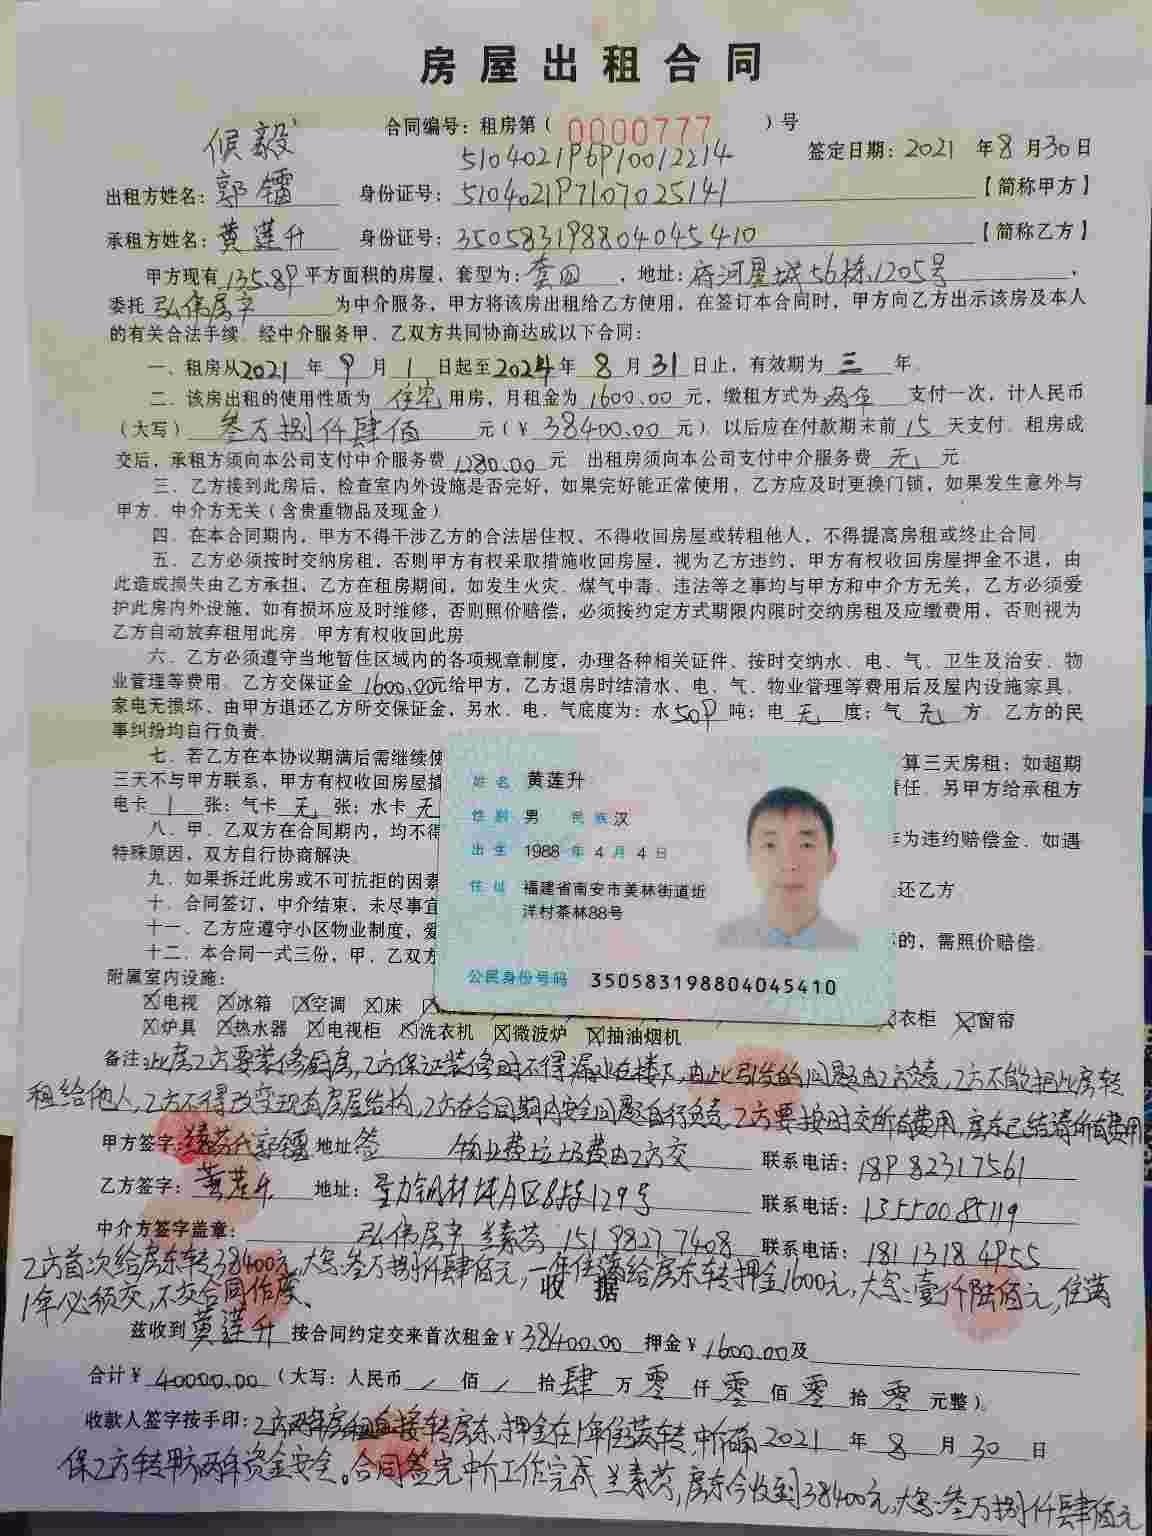 房屋出租合同
合同编号：租房第（ 0000777 ）号
候毅 510402196910012214 签定日期：2021 年 8 月 30 日
出租方姓名：郭镭 身份证号：510402197107025141 【简称甲方】
承租方姓名：黄莲升 身份证号：350583198804045410 【简称乙方】
甲方现有 135.89 平方面积的房屋，套型为：套四 ，地址：府河星城56栋1205号 ，
委托 弘伟房产 为中介服务，甲方将该房出租给乙方使用，在签订本合同时，甲方向乙方出示该房及本人
的有关合法手续。经中介服务甲、乙双方共同协商达成以下合同：
一、租房从2021 年 9 月 1 日起至2024年 8 月 31 日止，有效期为 三 年。
二、该房出租的使用性质为 住宅 用房，月租金为 1600.00 元，缴租方式为 两年 支付一次，计人民币
（大写） 叁万捌仟肆佰 元（￥ 38400.00 元）。以后应在付款期末前 15 天支付。租房成
交后，承租方须向本公司支付中介服务费 1280.00 元 出租房须向本公司支付中介服务费 无 元
三、乙方接到此房后，检查室内外设施是否完好，如果完好能正常使用，乙方应及时更换门锁，如果发生意外与
甲方、中介方无关（含贵重物品及现金）
四、在本合同期内，甲方不得干涉乙方的合法居住权、不得收回房屋或转租他人，不得提高房租或终止合同
五、乙方必须按时交纳房租，否则甲方有权采取措施收回房屋，视为乙方违约，甲方有权收回房屋押金不退，由
此造成损失由乙方承担，乙方在租房期间，如发生火灾、煤气中毒、违法等之事均与甲方和中介方无关，乙方必须爱
护此房内外设施，如有损坏应及时维修，否则照价赔偿，必须按约定方式期限内限时交纳房租及应缴费用，否则视为
乙方自动放弃租用此房。甲方有权收回此房
六、乙方必须遵守当地暂住区域内的各项规章制度，办理各种相关证件、按时交纳水、电、气、卫生及治安、物
业管理等费用。乙方交保证金 1600.00元给甲方，乙方退房时结清水、电、气、物业管理等费用后及屋内设施家具、
家电无损坏、由甲方退还乙方所交保证金，另水、电、气底度为：水509 吨；电 无 度；气 无 方。乙方的民
事纠纷均自行负责。
七、若乙方在本协议期满后需继续使 算三天房租；如超期
三天不与甲方联系，甲方有权收回房屋 责任。另甲方给承租方
电卡 1 张；气卡 无 张；水卡 无
八、甲、乙双方在合同期内，均不得 作为违约赔偿金。如遇
特殊原因，双方自行协商解决。
九、如果拆迁此房或不可抗拒的因素 还乙方。
十、合同签订，中介结束，未尽事宜
十一、乙方应遵守小区物业制度，爱 的，需照价赔偿。
十二、本合同一式三份，甲、乙双方
姓名 黄莲升
性别 男 民族 汉
出生 1988 年 4 月 4 日
住址 福建省南安市美林街道坵
洋村茶林88号
公民身份号码 350583198804045410
附属室内设施：
电视 冰箱 空调 床 衣柜 窗帘
炉具 热水器 电视柜 洗衣机 微波炉 抽油烟机
备注：此房乙方要装修厨房，乙方保证装修时不得漏水在楼下，由此引发的问题由乙方负责，乙方不能把此房转
租给他人，乙方不得改变现有房屋结构，乙方在合同期内安全问题自行负责，乙方要按时交所有费用，房东已结清所有费用
甲方签字： 代郭镭 地址 签 物业费垃圾费由乙方交 联系电话：18982317561
乙方签字： 黄莲升 地址：量力钢材城A区8栋129号 联系电话：13550085119
中介方签字盖章： 弘伟房产 兰素芬 15198277408 联系电话：18113184955
乙方首次给房东转38400元，大写：叁万捌仟肆佰元，一年住满给房东转押金1600元，大写：壹仟陆佰元，住满
1年必须交，不交合同作废、
收 据
兹收到 黄莲升 按合同约定交来首次租金￥ 38400.00 押金￥ 1600.00及
合计￥ 40000.00 （大写：人民币 / 佰 / 拾 肆 万 零 仟 零 佰 零 拾 零 元整）。
收款人签字按手印：乙方两年房租直接转房东，押金在1年住满转，中介确 2021 年 8 月 30 日
保乙方转甲方两年资金安全。合同签完中介工作完成 兰素芬，房东今收到38400元，大写：叁万捌仟肆佰元